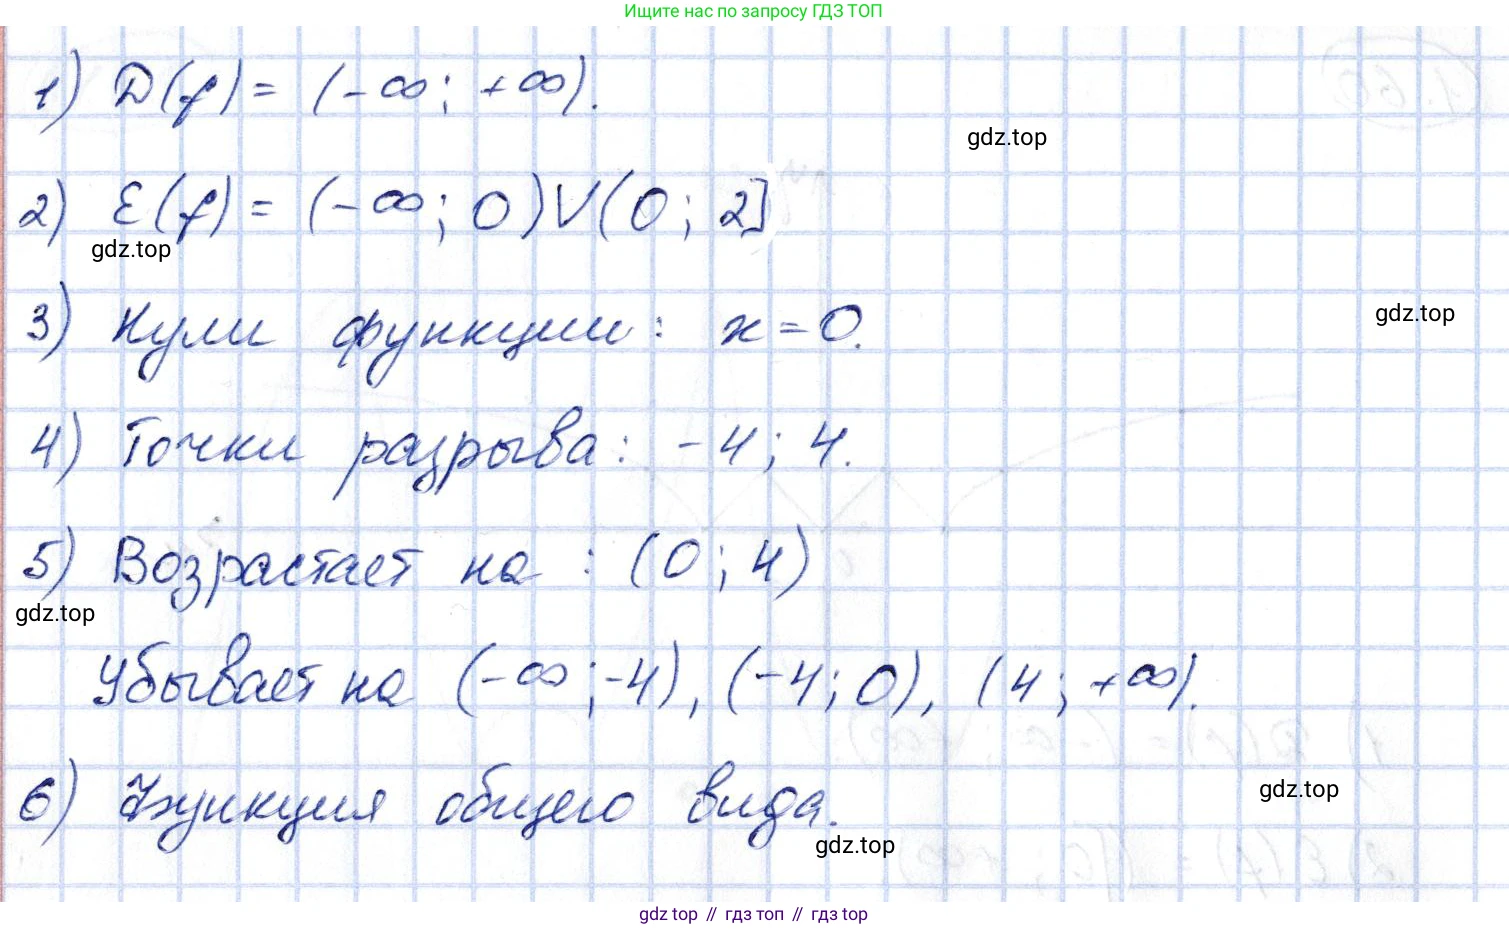 Ищите нас по запросу ГДЗ ТОП
1) D(f) = (-∞; +∞).
gdz.top
2) E(f) = (-∞; 0) V (0; 2]
gdz.top
3) Нули функции: x = 0.
gdz.top
4) Точки разрыва: -4; 4.
5) Возрастает на : (0; 4)
gdz.top
Убывает на (-∞; -4), (-4; 0), (4; +∞).
6) Функция общего вида.
gdz.top
gdz.top
gdz top // гдз топ // гдз top